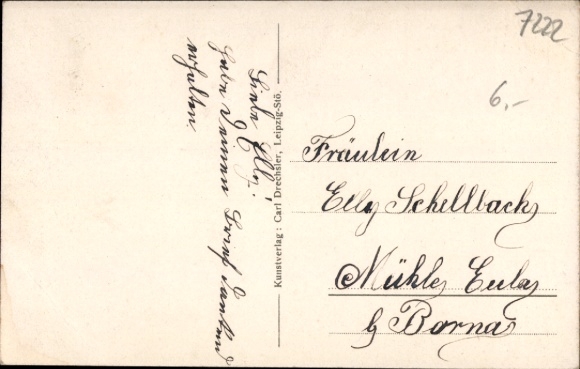 Liebe Elly!
Habe Deinen Brief dankend
erhalten.
Kunstverlag: Carl Drechsler, Leipzig-Stö.
7222
6,-
Fräulein
Elly Schellbach
Mühle Eula
b Borna